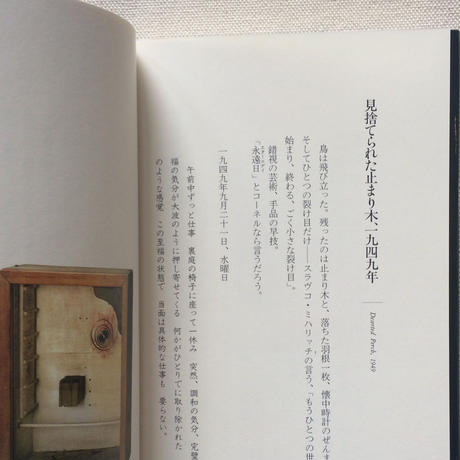 見捨てられた止まり木、一九四九年
Deserted Perch, 1949
鳥は飛び立った。残ったのは止まり木と、落ちた羽根一枚、懐中時計のぜんま
そしてひとつの裂け目だけ——スラヴコ・ミハリッチの言う、「もうひとつの世
始まり、終わる、ごく小さな裂け目」。
錯視の芸術、手品の早技。
「永遠日」とコーネルなら言うだろう。
一九四九年九月二十一日、水曜日
午前中ずっと仕事 裏庭の椅子に座って一休み 突然、調和の気分、完璧
福の気分が大波のように押し寄せてくる 何かがひとりでに取り除かれた
のような感覚 この至福の状態で 当面は具体的な仕事も 要らない。